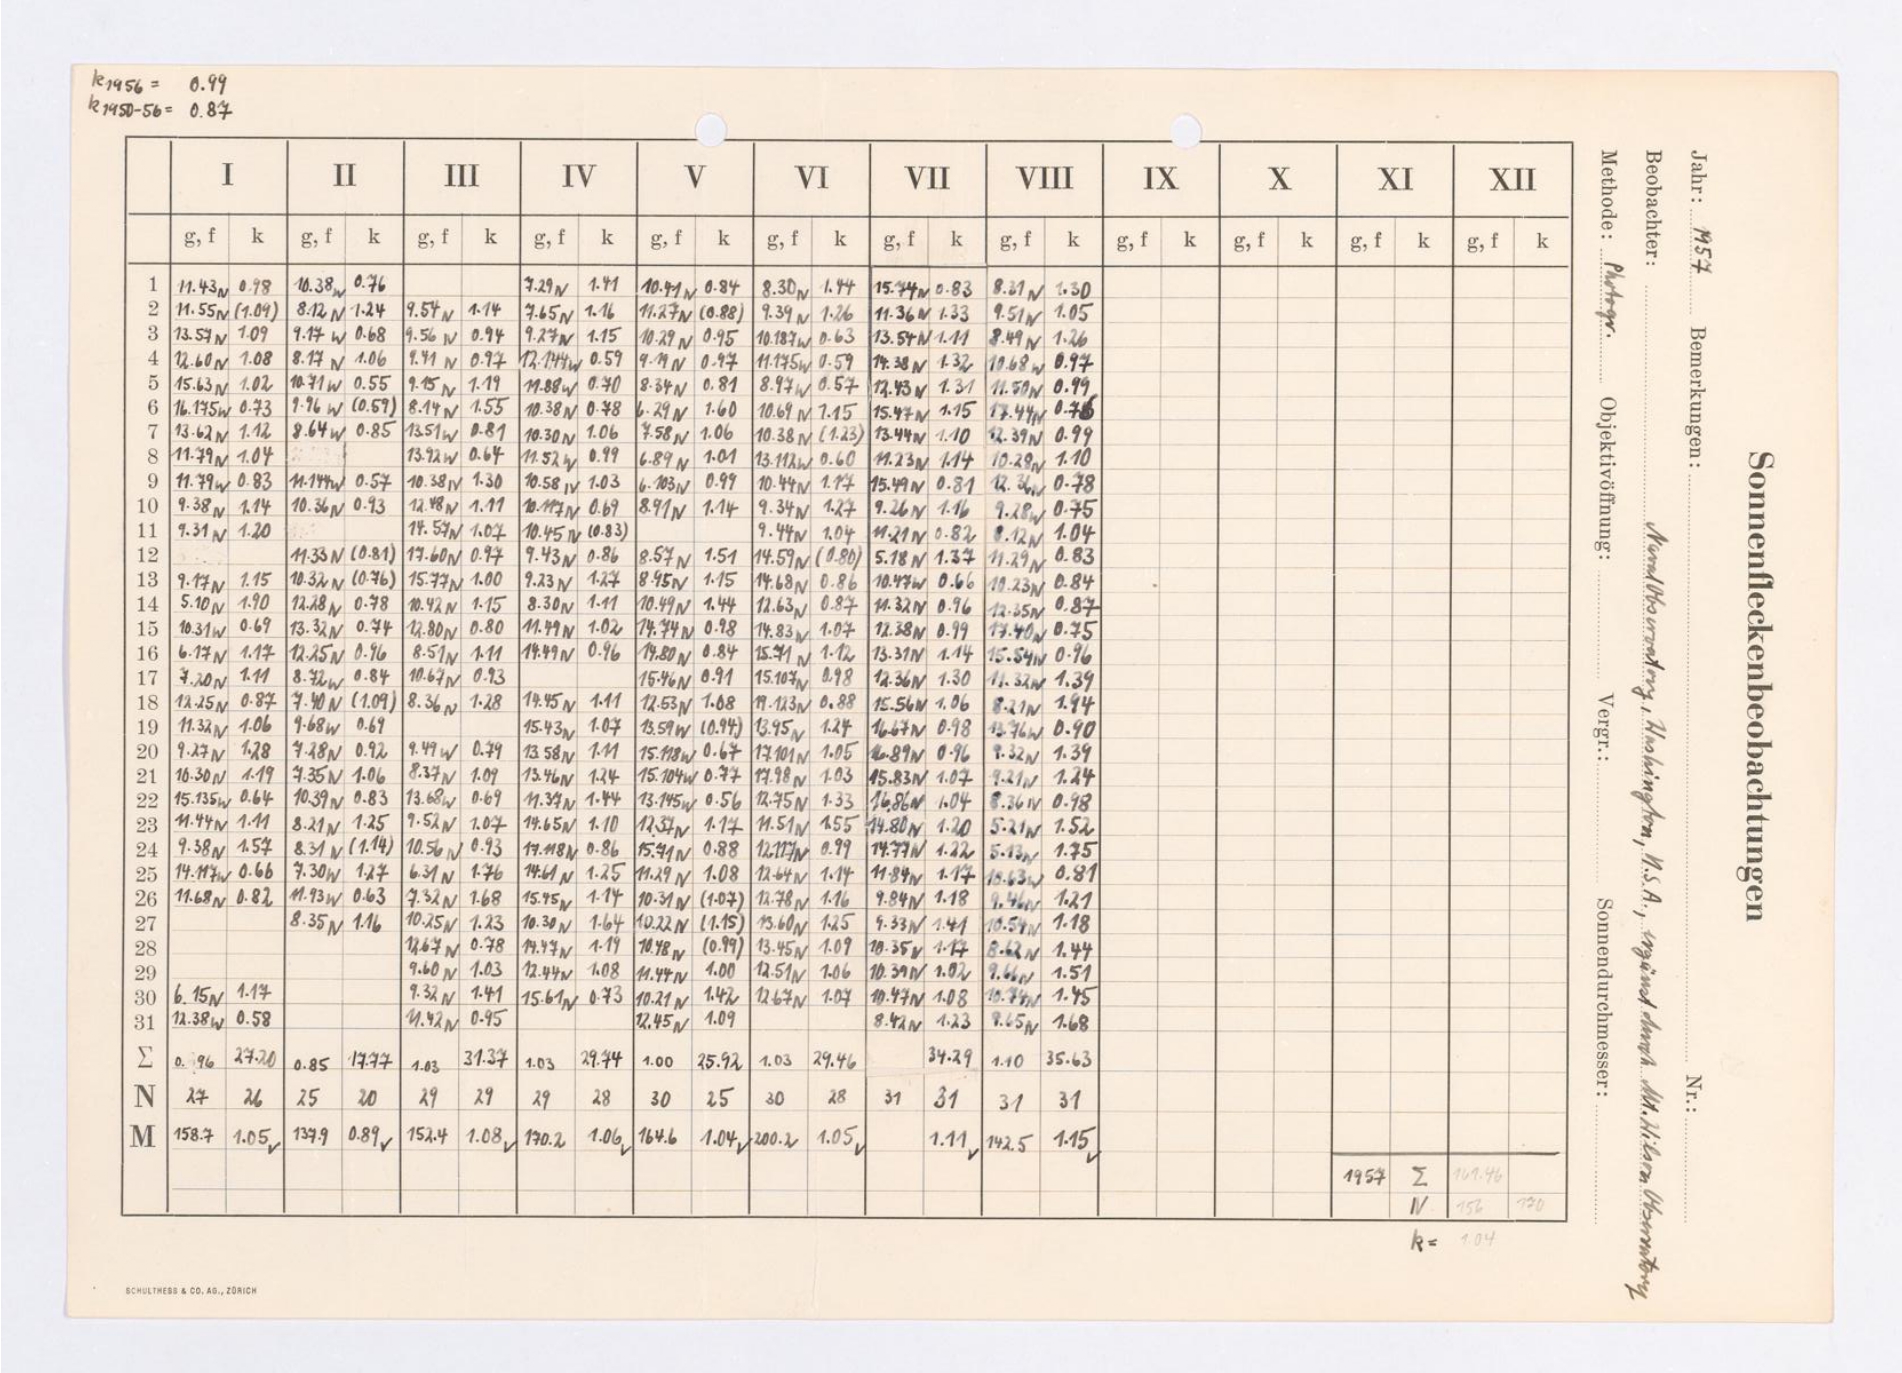 k1956 = 0.99
k1950-56 = 0.87
I II III IV V VI VII VIII IX X XI XII
g, f k g, f k g, f k g, f k g, f k g, f k g, f k g, f k g, f k g, f k g, f k g, f k
1 11.43N 0.98 10.38W 0.76 7.29N 1.41 10.41N 0.84 8.30N 1.44 15.74N 0.83 8.31N 1.30
2 11.55N (1.09) 8.12N 1.24 9.54N 1.14 7.65N 1.16 11.27N (0.88) 9.39N 1.26 11.36N 1.33 9.51N 1.05
3 13.57N 1.09 9.17W 0.68 9.56N 0.94 9.27N 1.15 10.29N 0.95 10.187W 0.63 13.54N 1.11 8.49N 1.26
4 12.60N 1.08 8.17N 1.06 9.41N 0.97 12.144W 0.59 9.19N 0.97 11.175W 0.59 14.38N 1.32 10.68W 0.97
5 15.63N 1.02 10.71W 0.55 9.15N 1.19 11.88W 0.70 8.34N 0.81 8.97W 0.57 12.43N 1.31 11.50N 0.99
6 16.175W 0.73 9.96W (0.59) 8.14N 1.55 10.38N 0.78 6.29N 1.60 10.69N 1.15 15.47N 1.15 17.44N
7 13.62N 1.12 8.64W 0.85 13.51W 0.81 10.30N 1.06 7.58N 1.06 10.38N (1.23) 13.44N 1.10 12.39N 0.99
8 11.79N 1.04 13.92W 0.64 11.52W 0.99 6.89N 1.01 13.112W 0.60 11.23N 1.14 10.28N 1.10
9 11.79W 0.83 11.144W 0.57 10.38N 1.30 10.58N 1.03 6.103N 0.99 10.44N 1.17 15.49N 0.81 12.36N 0.78
10 9.38N 1.14 10.36N 0.93 12.48N 1.11 10.117N 0.69 8.91N 1.14 9.34N 1.27 9.26N 1.16 9.28W 0.75
11 9.31N 1.20 14.57N 1.07 10.45N (0.83) 9.44N 1.04 11.21N 0.82 8.12N 1.04
12 11.33N (0.81) 17.60N 0.97 9.43N 0.86 8.57N 1.51 14.59N (0.80) 5.18N 1.37 11.29N 0.83
13 9.17N 1.15 10.32N (0.76) 15.77N 1.00 9.23N 1.27 8.95N 1.15 14.68N 0.86 10.47W 0.66 10.23N 0.84
14 5.10N 1.90 12.28N 0.78 10.42N 1.15 8.30N 1.11 10.49N 1.44 12.63N 0.87 11.32N 0.96 12.35N 0.87
15 10.31W 0.69 13.32N 0.74 12.80N 0.80 11.49N 1.02 14.74N 0.98 14.83N 1.07 12.38N 0.99 17.40N 0.75
16 6.17N 1.17 12.25N 0.96 8.51N 1.11 14.49N 0.96 14.80N 0.84 15.71N 1.12 13.31N 1.14 15.54N 0.96
17 7.20N 1.11 8.72W 0.84 10.67N 0.93 15.46N 0.91 15.107N 0.98 12.36N 1.30 11.32N 1.39
18 12.25N 0.87 7.40N (1.09) 8.36N 1.28 14.45N 1.11 12.53N 1.08 19.123N 0.88 15.56N 1.06 8.21N 1.94
19 11.32N 1.06 9.68W 0.69 15.43N 1.07 13.59W (0.94) 13.95N 1.24 16.67N 0.98 13.76W 0.90
20 9.27N 1.28 7.28N 0.92 9.49W 0.79 13.58N 1.11 15.118W 0.67 17.101N 1.05 16.89N 0.96 9.32N 1.39
21 10.30N 1.19 7.35N 1.06 8.37N 1.09 13.46N 1.24 15.104W 0.77 17.98N 1.03 15.83N 1.07 9.21N 1.24
22 15.135W 0.64 10.39N 0.83 13.68W 0.69 11.37N 1.44 13.145W 0.56 12.75N 1.33 16.86N 1.04 8.36N 0.98
23 11.44N 1.11 8.21N 1.25 9.52N 1.07 14.65N 1.10 12.37N 1.17 11.51N 1.55 14.80N 1.20 5.21N 1.52
24 9.38N 1.57 8.31N (1.14) 10.56N 0.93 17.118N 0.86 15.71N 0.88 12.117N 0.99 14.77N 1.22 5.13N 1.75
25 14.117W 0.66 7.30W 1.27 6.31N 1.76 14.61N 1.25 11.29N 1.08 12.64N 1.14 11.84N 1.17 10.63W 0.81
26 11.68N 0.82 11.93W 0.63 7.32N 1.68 15.45N 1.14 10.31N (1.07) 12.78N 1.16 9.84N 1.18 9.46N 1.21
27 8.35N 1.16 10.25N 1.23 10.30N 1.64 10.22N (1.15) 13.60N 1.25 9.33N 1.41 10.54N 1.18
28 12.67N 0.78 14.47N 1.19 10.48N (0.99) 13.45N 1.09 10.35N 1.17 8.62N 1.44
29 9.60N 1.03 12.44N 1.08 11.44N 1.00 12.51N 1.06 10.39N 1.02 9.66N 1.51
30 6.15N 1.17 9.32N 1.41 15.61N 0.73 10.21N 1.42 12.67N 1.07 10.47N 1.08 10.74N 1.45
31 12.38W 0.58 11.42N 0.95 12.45N 1.09 8.42N 1.23 9.65N 1.68
Σ 0.96 27.20 0.85 17.77 1.03 31.37 1.03 29.74 1.00 25.92 1.03 29.46 34.29 1.10 35.63
N 27 26 25 20 29 29 29 28 30 25 30 28 31 31 31 31
M 158.7 1.05✓ 137.9 0.89✓ 152.4 1.08✓ 170.2 1.06✓ 164.6 1.04✓ 200.2 1.05✓ 1.11✓ 142.5 1.15✓
1957 Σ 161.46
N 156 130
k = 1.04
SCHULTHESS & CO. AG., ZÜRICH
Sonnenfleckenbeobachtungen
Jahr: 1957 Bemerkungen: Nr.:
Beobachter: Naval Observatory, Washington, U.S.A., ergänzt durch Mt. Wilson Observatory
Methode: Photogr. Objektivöffnung: Vergr.: Sonnendurchmesser: